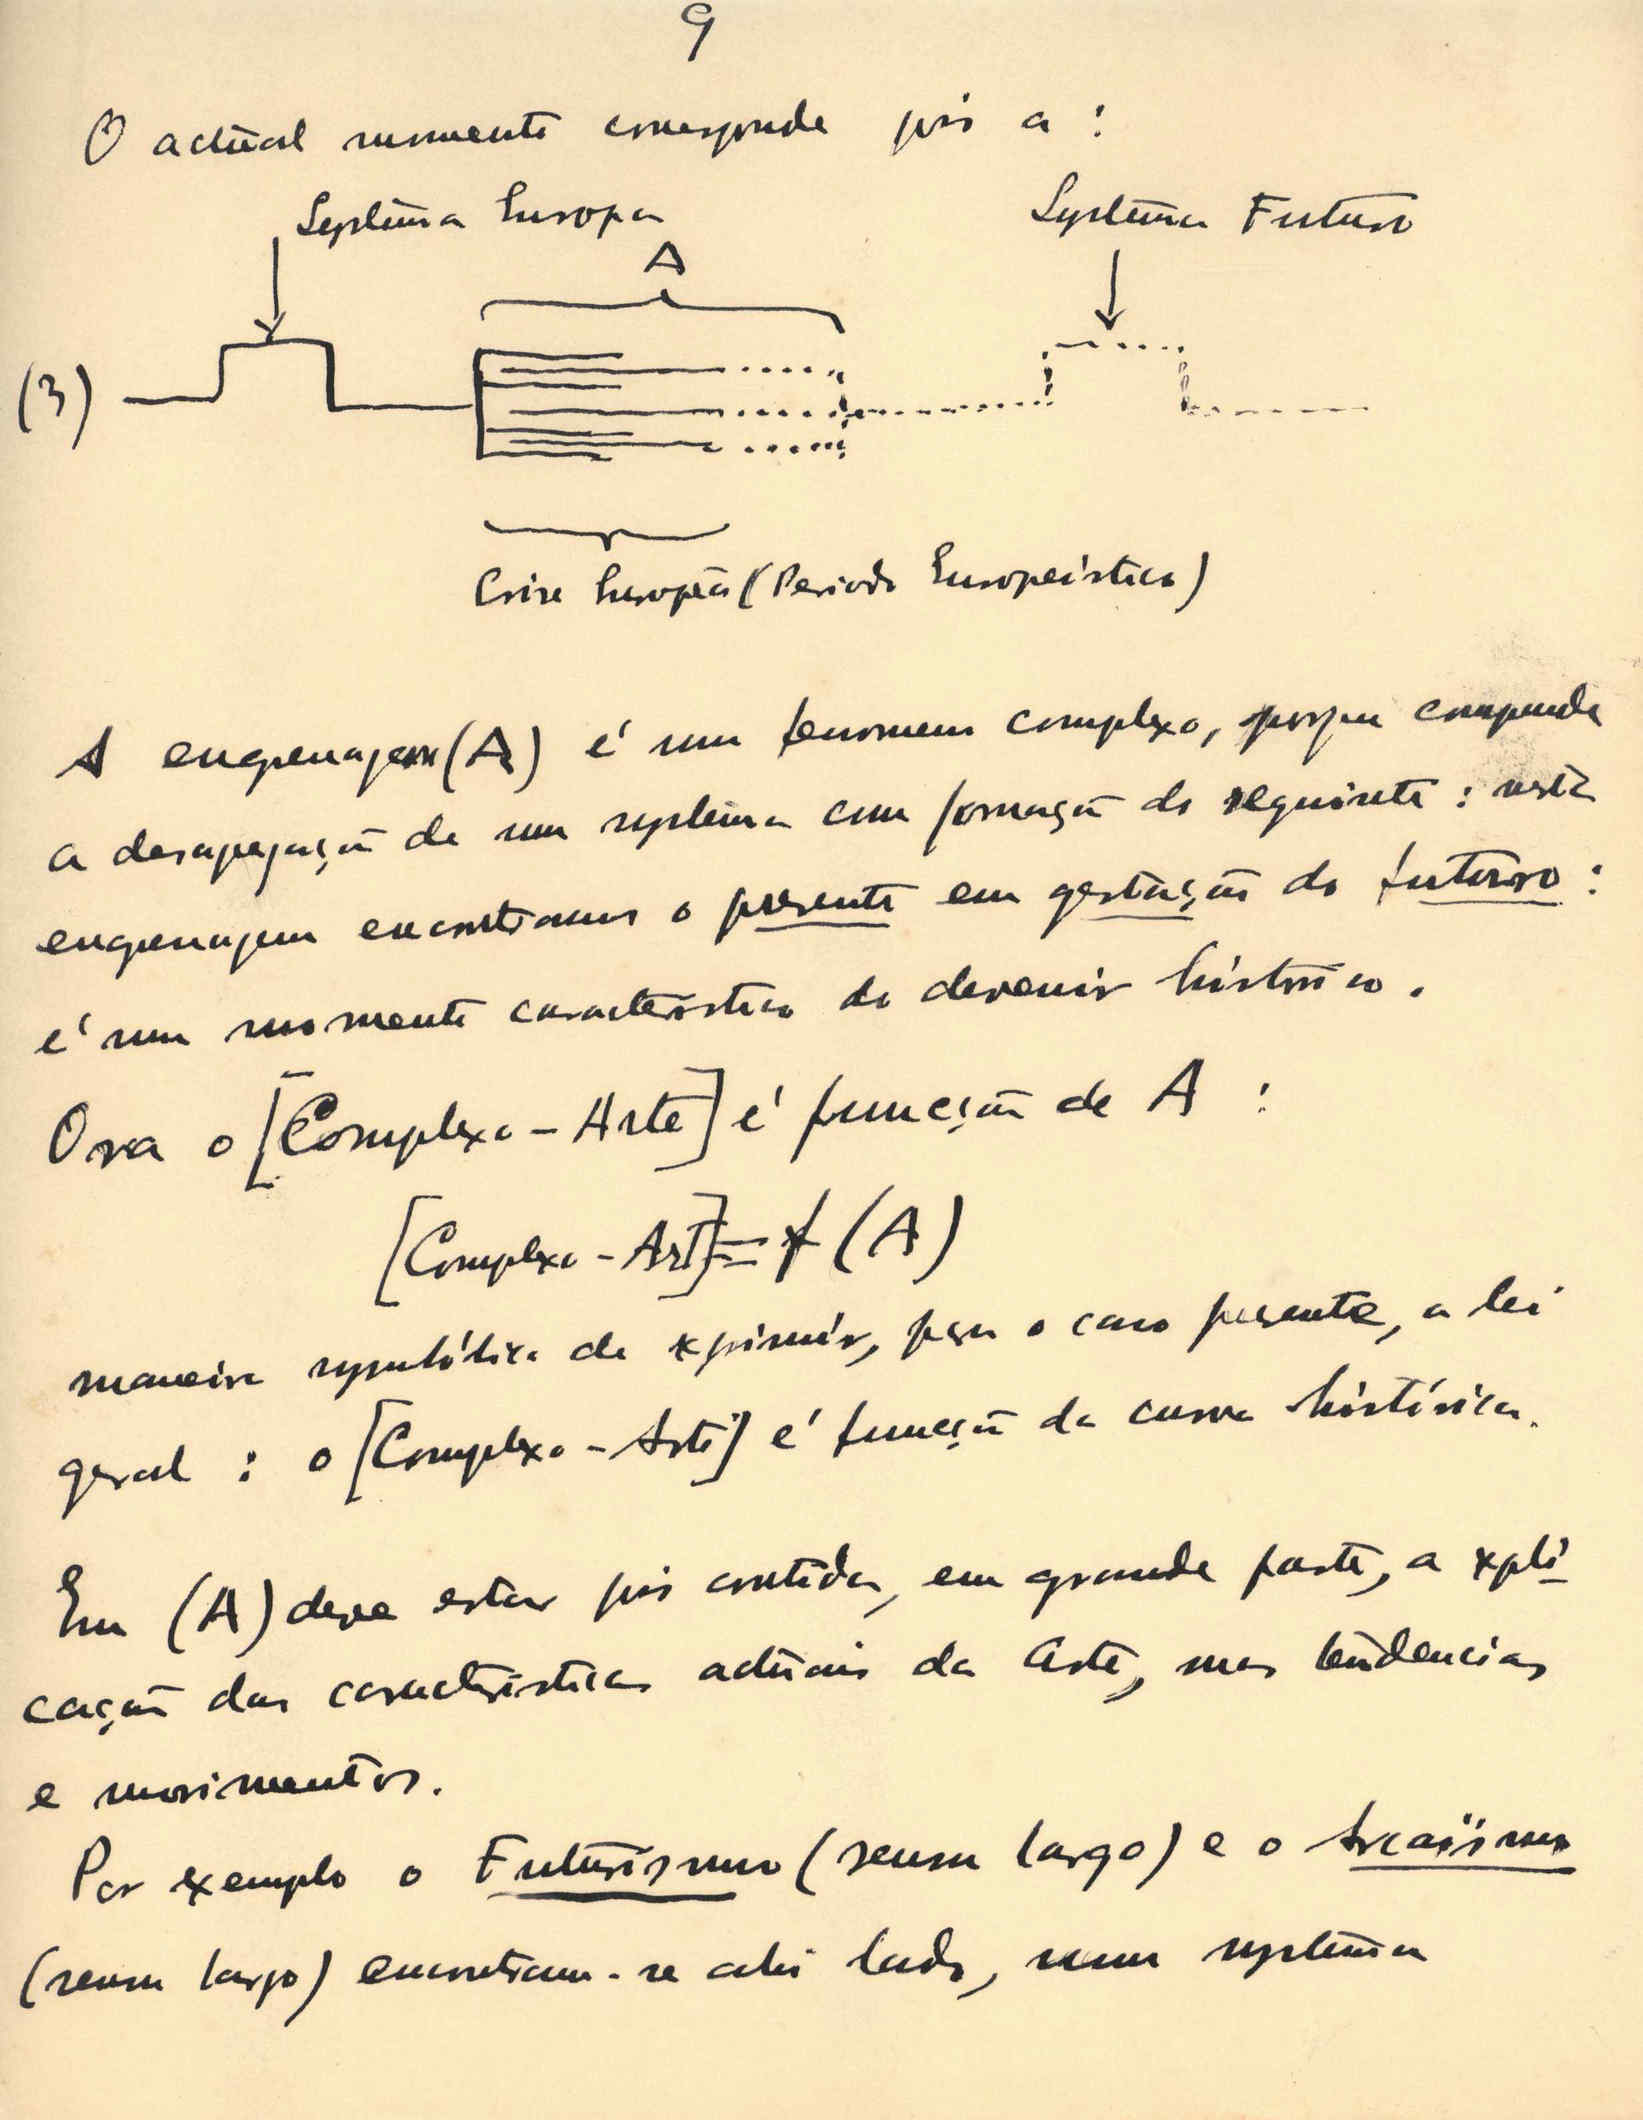 9
O actual momento corresponde pois a :
Systema Europa
Systema Futuro
A
(3)
Crise Europêa (Periodo Europeistico)
A engrenagem (A) é um fenomeno complexo, porque comprende
a desagregação de um systema com formação do seguinte : nesta
engrenagem encontramos o presente em gestação do futuro :
é um momento caracteristico do devenir histórico.
Ora o [Complexo - Arte] é funcção de A :
[Complexo - Art] = f (A)
maneira symbólica de exprimir, para o caso presente, a lei
geral : o [Complexo - Arte] é funcção da curva histórica.
Em (A) deve estar pois contida, em grande parte, a expli-
cação das caracteristicas actuais da Arte, suas tendencias
e movimentos.
Por exemplo o Futurismo (senso largo) e o Arcaïsmo
(senso largo) encontram-se lado, num systema